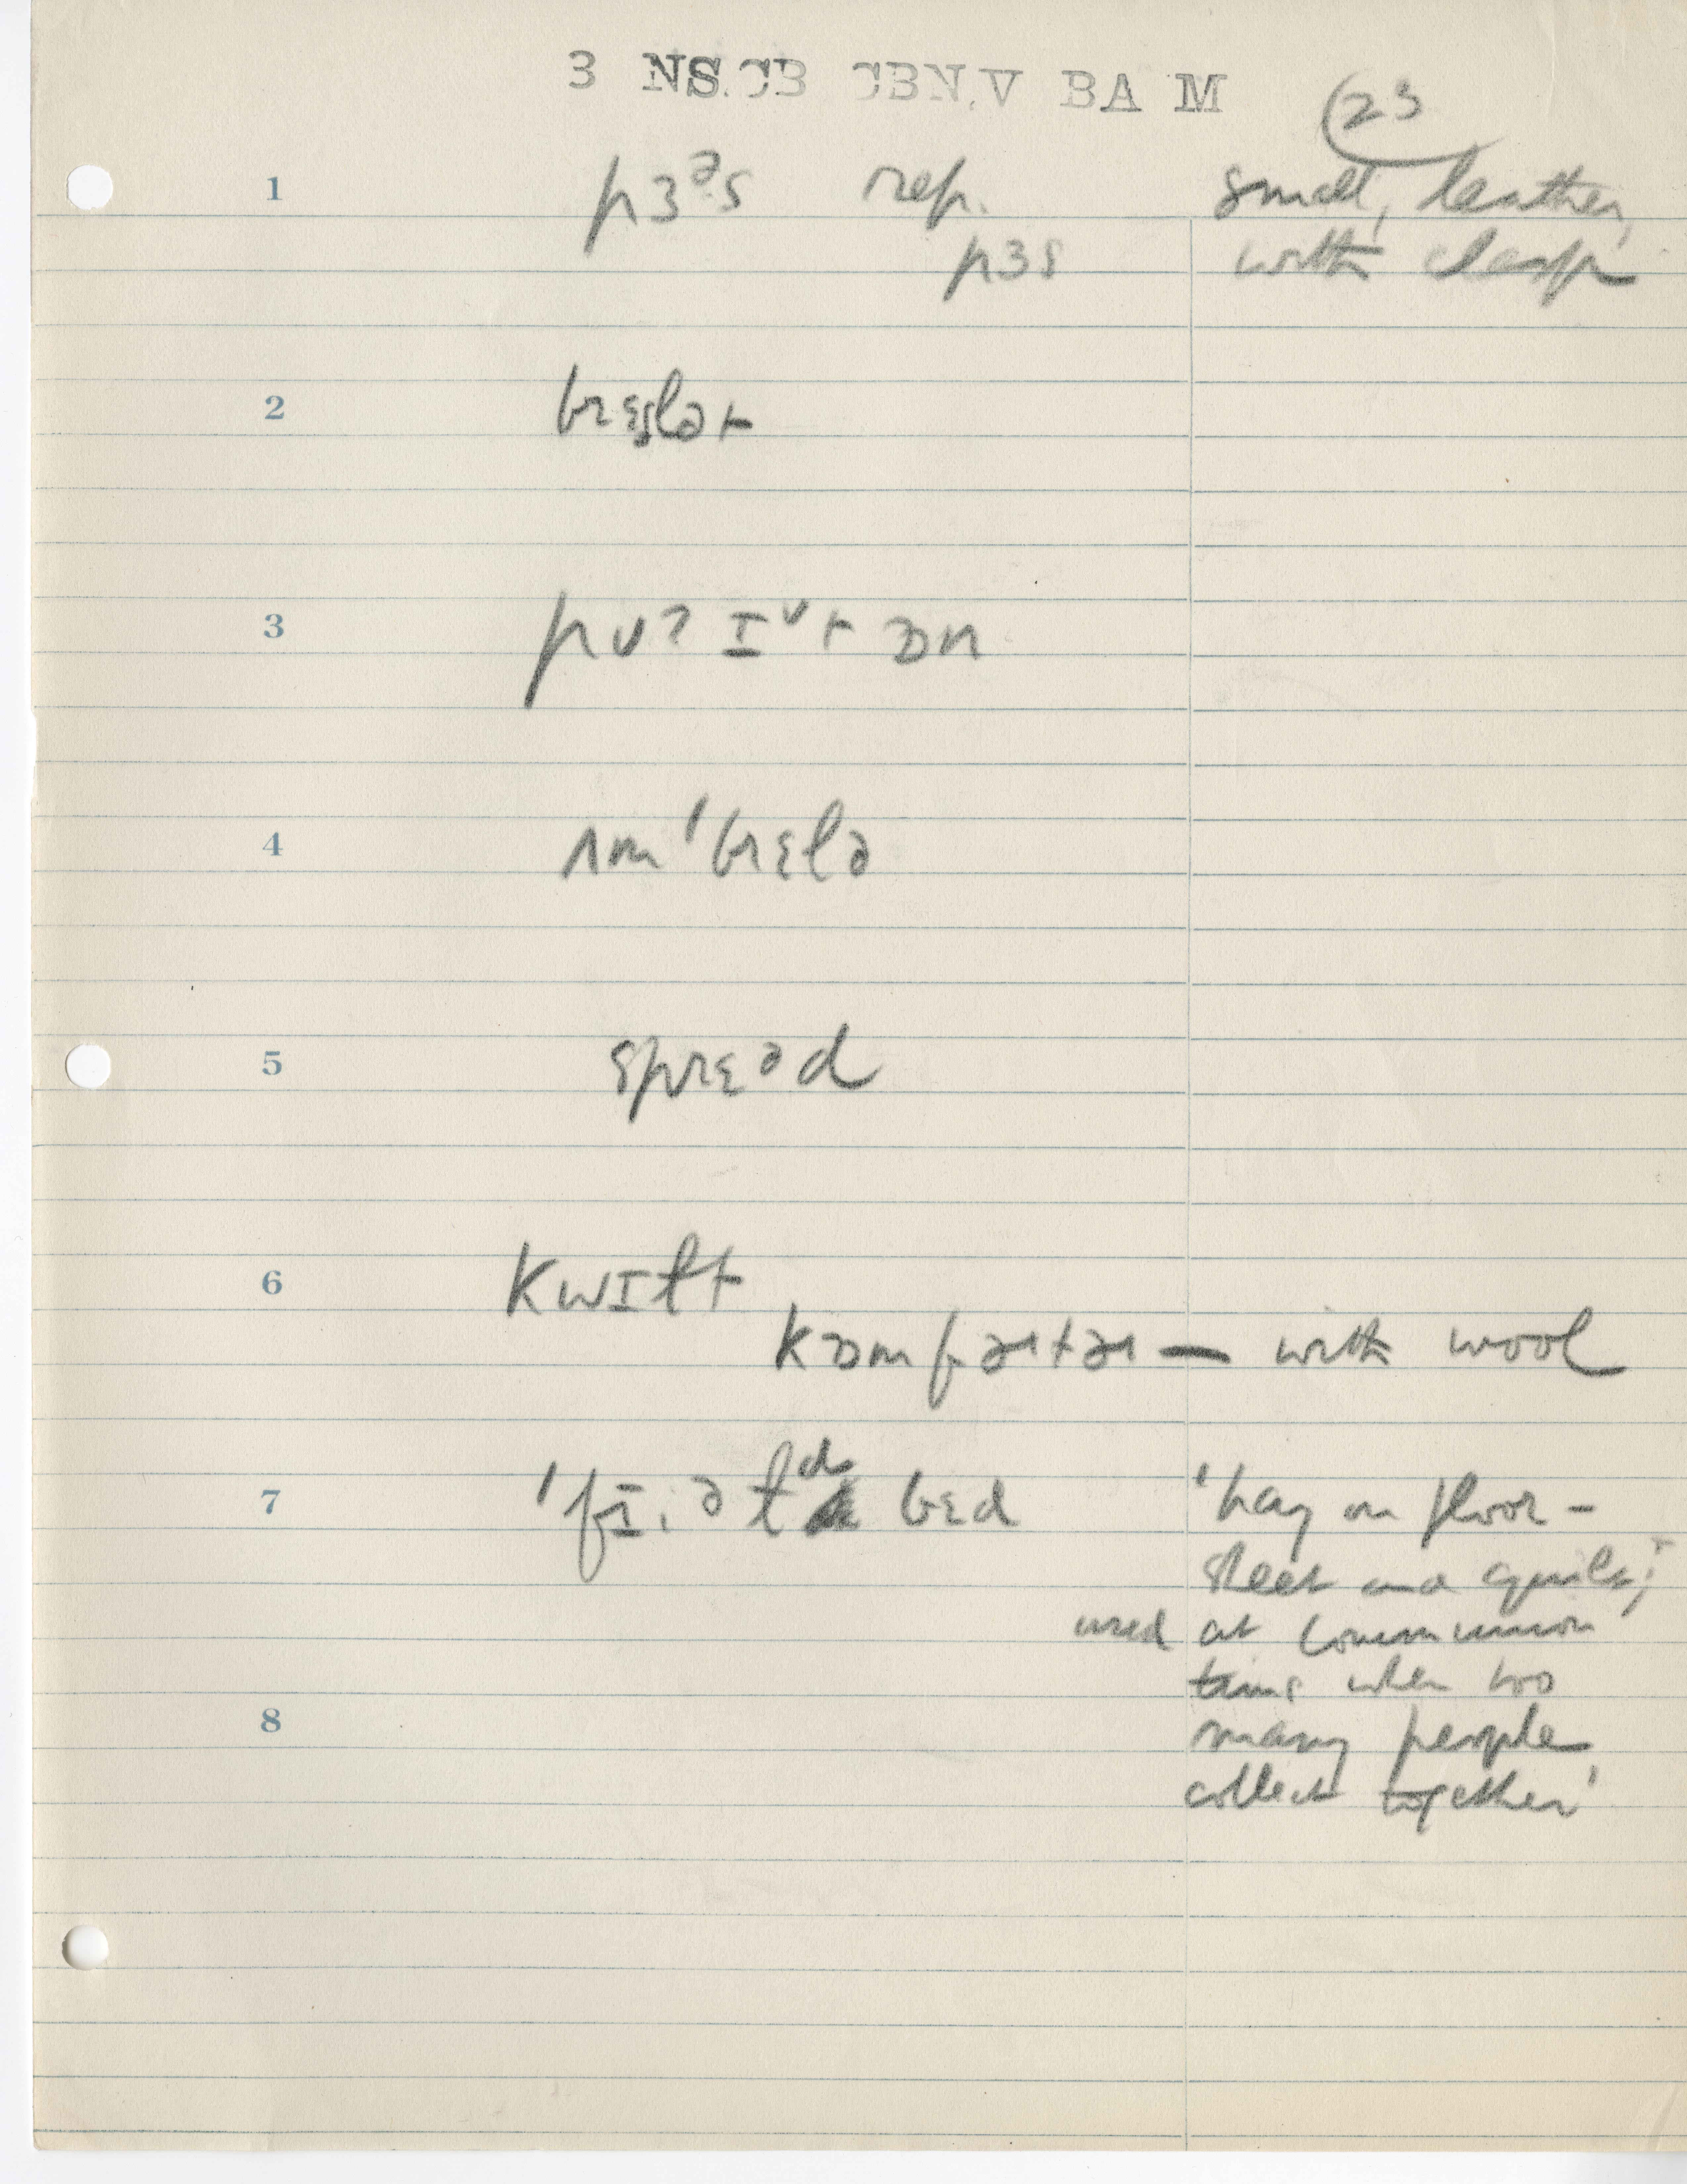 3 NS.CB CBN.V BA M
23
1 pɜᵊs rep. small, leather,
pɜs with clasp
2 brɛslət
3 pʊʔ ɪᵛt ɒn
4 ʌm'brɛlə
5 sprɛəd
6 kwɪlt
kɒmfɚtɚ — with wool
7 'fɪ.əld bɛd 'hay on floor –
sheet and quilt;
used at communion
time when too
many people
collect together'
8